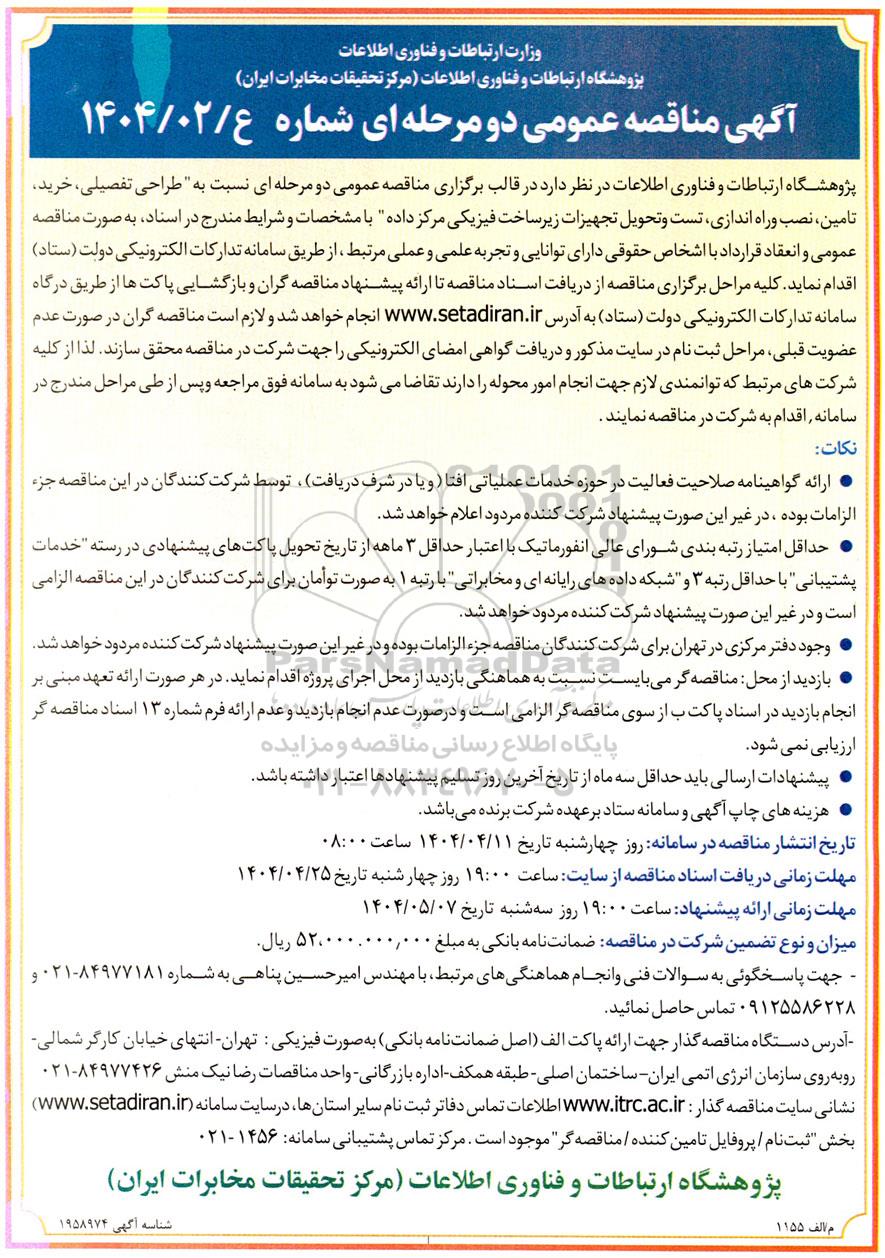 وزارت ارتباطات و فناوری اطلاعات
پژوهشگاه ارتباطات و فناوری اطلاعات (مرکز تحقیقات مخابرات ایران)
آگهی مناقصه عمومی دو مرحله ای شماره ع/۱۴۰۴/۰۲
پژوهشگاه ارتباطات و فناوری اطلاعات در نظر دارد در قالب برگزاری مناقصه عمومی دو مرحله ای نسبت به "طراحی تفصیلی، خرید،
تامین، نصب وراه اندازی، تست وتحویل تجهیزات زیرساخت فیزیکی مرکز داده" با مشخصات و شرایط مندرج در اسناد، به صورت مناقصه
عمومی و انعقاد قرارداد با اشخاص حقوقی دارای توانایی و تجربه علمی و عملی مرتبط ، از طریق سامانه تدارکات الکترونیکی دولت (ستاد)
اقدام نماید. کلیه مراحل برگزاری مناقصه از دریافت اسناد مناقصه تا ارائه پیشنهاد مناقصه گران و بازگشایی پاکت ها از طریق درگاه
سامانه تدارکات الکترونیکی دولت (ستاد) به آدرس www.setadiran.ir انجام خواهد شد و لازم است مناقصه گران در صورت عدم
عضویت قبلی، مراحل ثبت نام در سایت مذکور و دریافت گواهی امضای الکترونیکی را جهت شرکت در مناقصه محقق سازند. لذا از کلیه
شرکت های مرتبط که توانمندی لازم جهت انجام امور محوله را دارند تقاضا می شود به سامانه فوق مراجعه وپس از طی مراحل مندرج در
سامانه , اقدام به شرکت در مناقصه نمایند .
نکات:
● ارائه گواهینامه صلاحیت فعالیت در حوزه خدمات عملیاتی افتا ( و یا در شرف دریافت) ، توسط شرکت کنندگان در این مناقصه جزء
الزامات بوده ، در غیر این صورت پیشنهاد شرکت کننده مردود اعلام خواهد شد.
● حداقل امتیاز رتبه بندی شورای عالی انفورماتیک با اعتبار حداقل ۳ ماهه از تاریخ تحویل پاکت‌های پیشنهادی در رسته "خدمات
پشتیبانی" با حداقل رتبه ۳ و "شبکه داده های رایانه ای و مخابراتی" با رتبه ۱ به صورت توأمان برای شرکت کنندگان در این مناقصه الزامی
است و در غیر این صورت پیشنهاد شرکت کننده مردود خواهد شد.
● وجود دفتر مرکزی در تهران برای شرکت کنندگان مناقصه جزء الزامات بوده و در غیر این صورت پیشنهاد شرکت کننده مردود خواهد شد.
● بازدید از محل: مناقصه گر می‌بایست نسبت به هماهنگی بازدید از محل اجرای پروژه اقدام نماید. در هر صورت ارائه تعهد مبنی بر
انجام بازدید در اسناد پاکت ب از سوی مناقصه گر الزامی است و درصورت عدم انجام بازدید و عدم ارائه فرم شماره ۱۳ اسناد مناقصه گر
ارزیابی نمی شود.
● پیشنهادات ارسالی باید حداقل سه ماه از تاریخ آخرین روز تسلیم پیشنهادها اعتبار داشته باشد.
● هزینه های چاپ آگهی و سامانه ستاد برعهده شرکت برنده می‌باشد.
تاریخ انتشار مناقصه در سامانه: روز چهارشنبه تاریخ ۱۴۰۴/۰۴/۱۱ ساعت ۰۸:۰۰
مهلت زمانی دریافت اسناد مناقصه از سایت: ساعت ۱۹:۰۰ روز چهار شنبه تاریخ ۱۴۰۴/۰۴/۲۵
مهلت زمانی ارائه پیشنهاد: ساعت ۱۹:۰۰ روز سه‌شنبه تاریخ ۱۴۰۴/۰۵/۰۷
میزان و نوع تضمین شرکت در مناقصه: ضمانت‌نامه بانکی به مبلغ ۵۲،۰۰۰.۰۰۰,۰۰۰ ریال.
- جهت پاسخگوئی به سوالات فنی وانجام هماهنگی های مرتبط، با مهندس امیرحسین پناهی به شماره ۸۴۹۷۷۱۸۱-۰۲۱ و
۰۹۱۲۵۵۸۶۲۲۸ تماس حاصل نمائید.
-آدرس دستگاه مناقصه گذار جهت ارائه پاکت الف (اصل ضمانت‌نامه بانکی) به‌صورت فیزیکی : تهران- انتهای خیابان کارگر شمالی-
روبه‌روی سازمان انرژی اتمی ایران–ساختمان اصلی-طبقه همکف-اداره بازرگانی-واحد مناقصات رضا نیک منش ۸۴۹۷۷۴۲۶-۰۲۱
نشانی سایت مناقصه گذار : www.itrc.ac.ir اطلاعات تماس دفاتر ثبت نام سایر استان‌ها، درسایت سامانه (www.setadiran.ir)
بخش "ثبت‌نام / پروفایل تامین کننده / مناقصه‌گر" موجود است . مرکز تماس پشتیبانی سامانه: ۱۴۵۶-۰۲۱
پژوهشگاه ارتباطات و فناوری اطلاعات (مرکز تحقیقات مخابرات ایران)
م/الف ۱۱۵۵
شناسه آگهی ۱۹۵۸۹۷۴
ParsNamadData
پایگاه اطلاع رسانی مناقصه و مزایده
۰۲۱-۸۸۳۴۹۶۷۰-۵